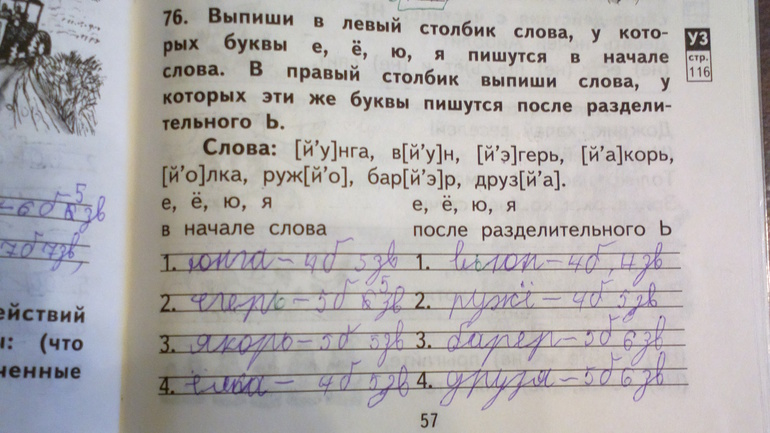 76. Выпиши в левый столбик слова, у кото-
рых буквы е, ё, ю, я пишутся в начале
слова. В правый столбик выпиши слова, у
которых эти же буквы пишутся после раздели-
тельного Ь.
УЗ
стр.
116
Слова: [й'у]нга, в[й'у]н, [й'э]герь, [й'а]корь,
[й'о]лка, руж[й'о], бар[й'э]р, друз[й'а].
е, ё, ю, я е, ё, ю, я
в начале слова после разделительного Ь
1. юнга – 4б 5зв 1. вьюн – 4б, 4зв
2. егерь – 5б 5зв 2. ружё – 4б 5зв
3. якорь – 5б 5зв 3. барер – 5б 6зв
4. ёлка – 4б 5зв 4. друзя – 5б 6зв
7б 7зв,
ействий
ы: (что
ченные
57